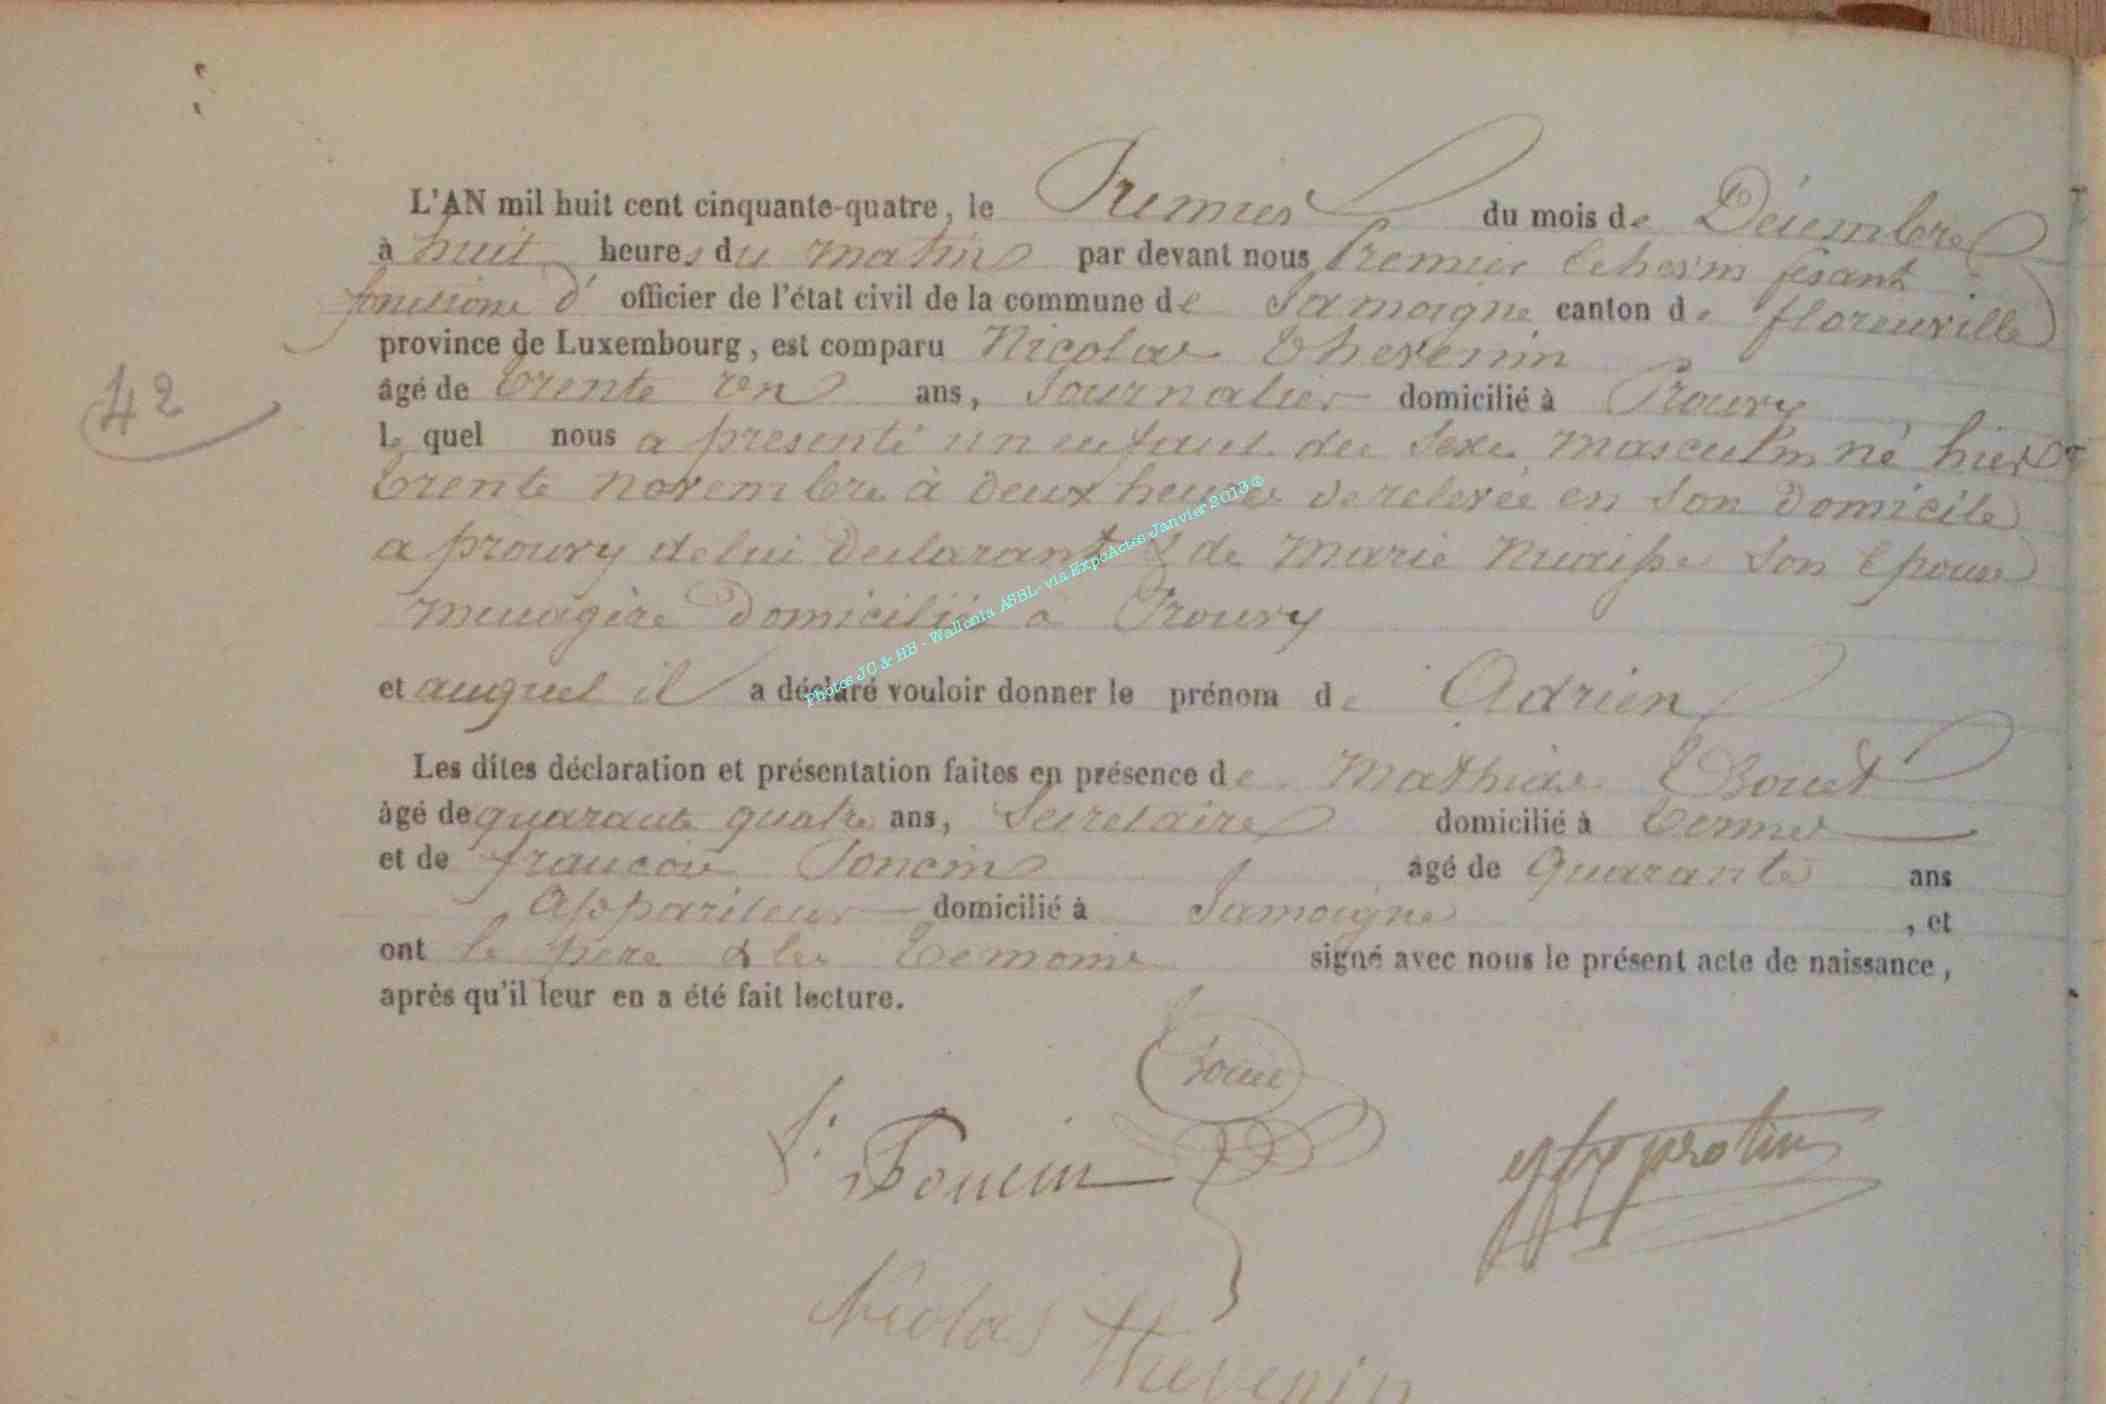 L'AN mil huit cent cinquante-quatre, le Premier du mois de Décembre
à huit heures du matin par devant nous Premier Echevin fesant
fonctions d' officier de l'état civil de la commune de Jamoigne canton de florenville
province de Luxembourg, est comparu Nicolas Thevenin
42
âgé de trente un ans, Journalier domicilié à Prouvy
le quel nous a presenté un enfant du sexe masculin né hier
trente novembre à deux heures de relevée en son domicile
a prouvy de lui declarant & de Marie son Epouse
menagère domiciliée à Prouvy
et auquel il a déclaré vouloir donner le prénom de Adrien
Les dites déclaration et présentation faites en présence de Mathias
âgé de quarante quatre ans, Secretaire domicilié à Termes
et de francois Poncin âgé de Quarante ans
Appariteur domicilié à Jamoigne , et
ont le père & les temoins signé avec nous le présent acte de naissance,
après qu'il leur en a été fait lecture.
f. Poncin
Nicolas Thevenin
Photos JC & HB - Wallonia ASBL - via ExpoActes Janvier 2013 ©